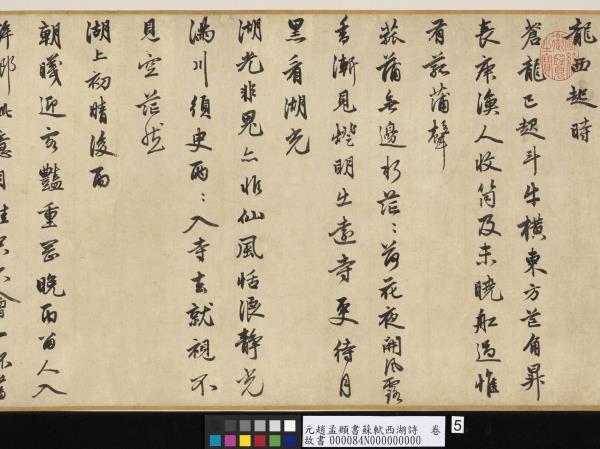 龍西起時
蒼龍已起斗牛橫東方芒角昇
長庚漁人收筒及未曉船過惟
有菰蒲聲
菰蒲無邊水茫〻荷花夜開風露
香漸見燈明出遠寺更待月
黑看湖光
湖光非鬼亦非仙風恬浪靜光
滿川須臾兩〻入寺去就視不
見空茫然
湖上初晴後雨
朝曦迎客豔重岡晚雨留人入
醉鄉此意自佳君不會一杯當
元趙孟頫書蘇軾西湖詩 卷
故書 000084N000000000
5